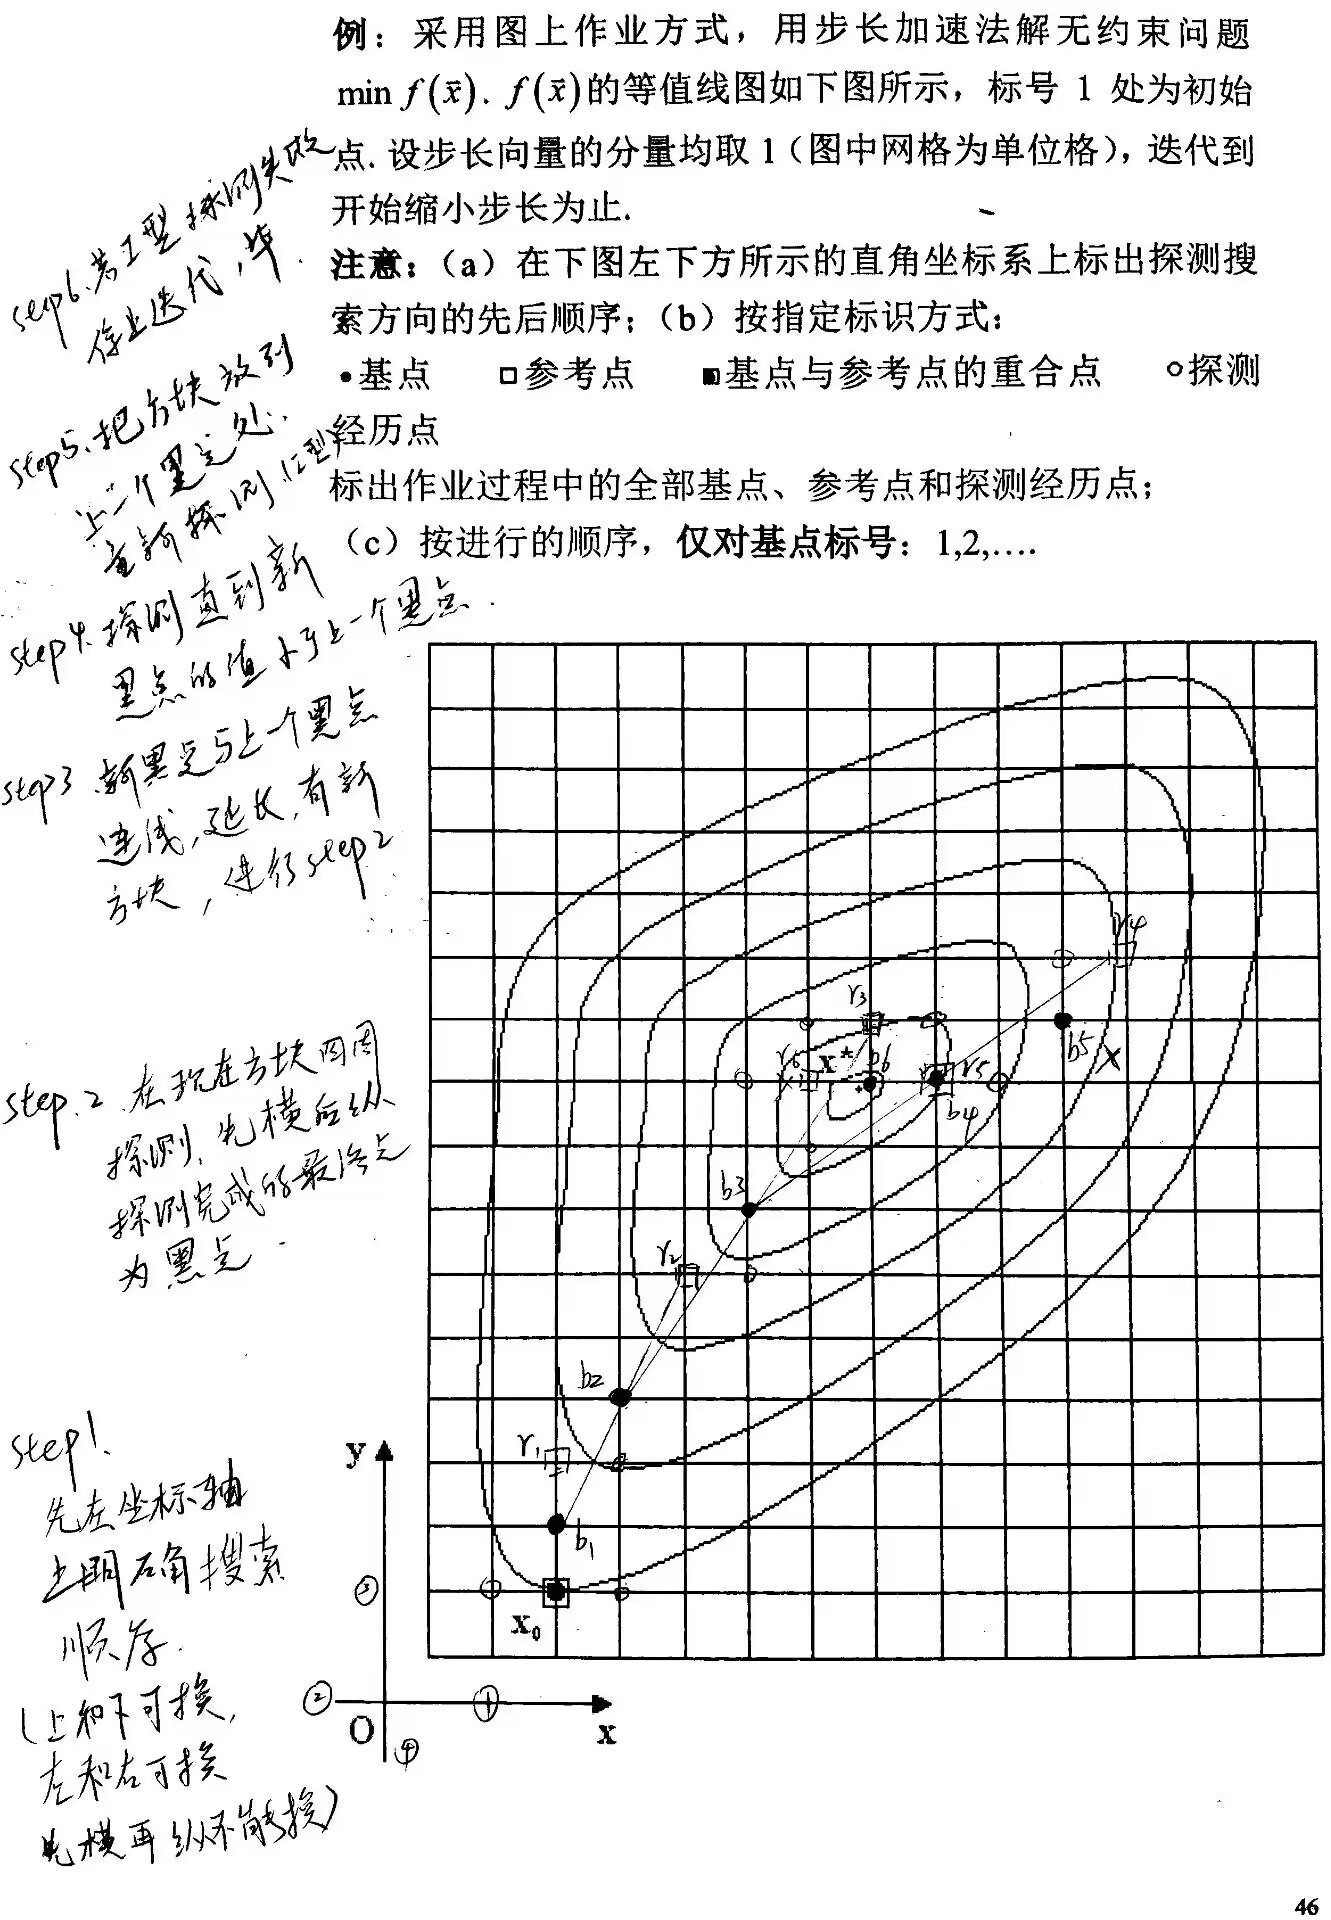 例：采用图上作业方式，用步长加速法解无约束问题
min f(x̄). f(x̄)的等值线图如下图所示，标号 1 处为初始
点. 设步长向量的分量均取 1（图中网格为单位格），迭代到
开始缩小步长为止.
注意：（a）在下图左下方所示的直角坐标系上标出探测搜
索方向的先后顺序；（b）按指定标识方式：
●基点 □参考点 ■基点与参考点的重合点 ○探测
经历点
标出作业过程中的全部基点、参考点和探测经历点；
（c）按进行的顺序，仅对基点标号：1,2,….
step6. 若工型探测失败
停止迭代，毕.
step5. 把方块放到
上一个黑点处.
重新探测(工型)
step4. 探测直到新
黑点的值小于上一个黑点.
step3 新黑点与上个黑点
连线,延长,有新
方块，进行step2
step.2 .在现在方块四周
探测，先横后纵
探测完成的最终点
为黑点.
step1.
先在坐标轴
上明确搜索
顺序.
(上和下可换,
左和右可换
先横再纵不能换)
r4
r3
b5
r6
x*
b6
r5
b4
b3
r2
b2
r1
b1
x₀
y
③
②
①
O
x
④
46